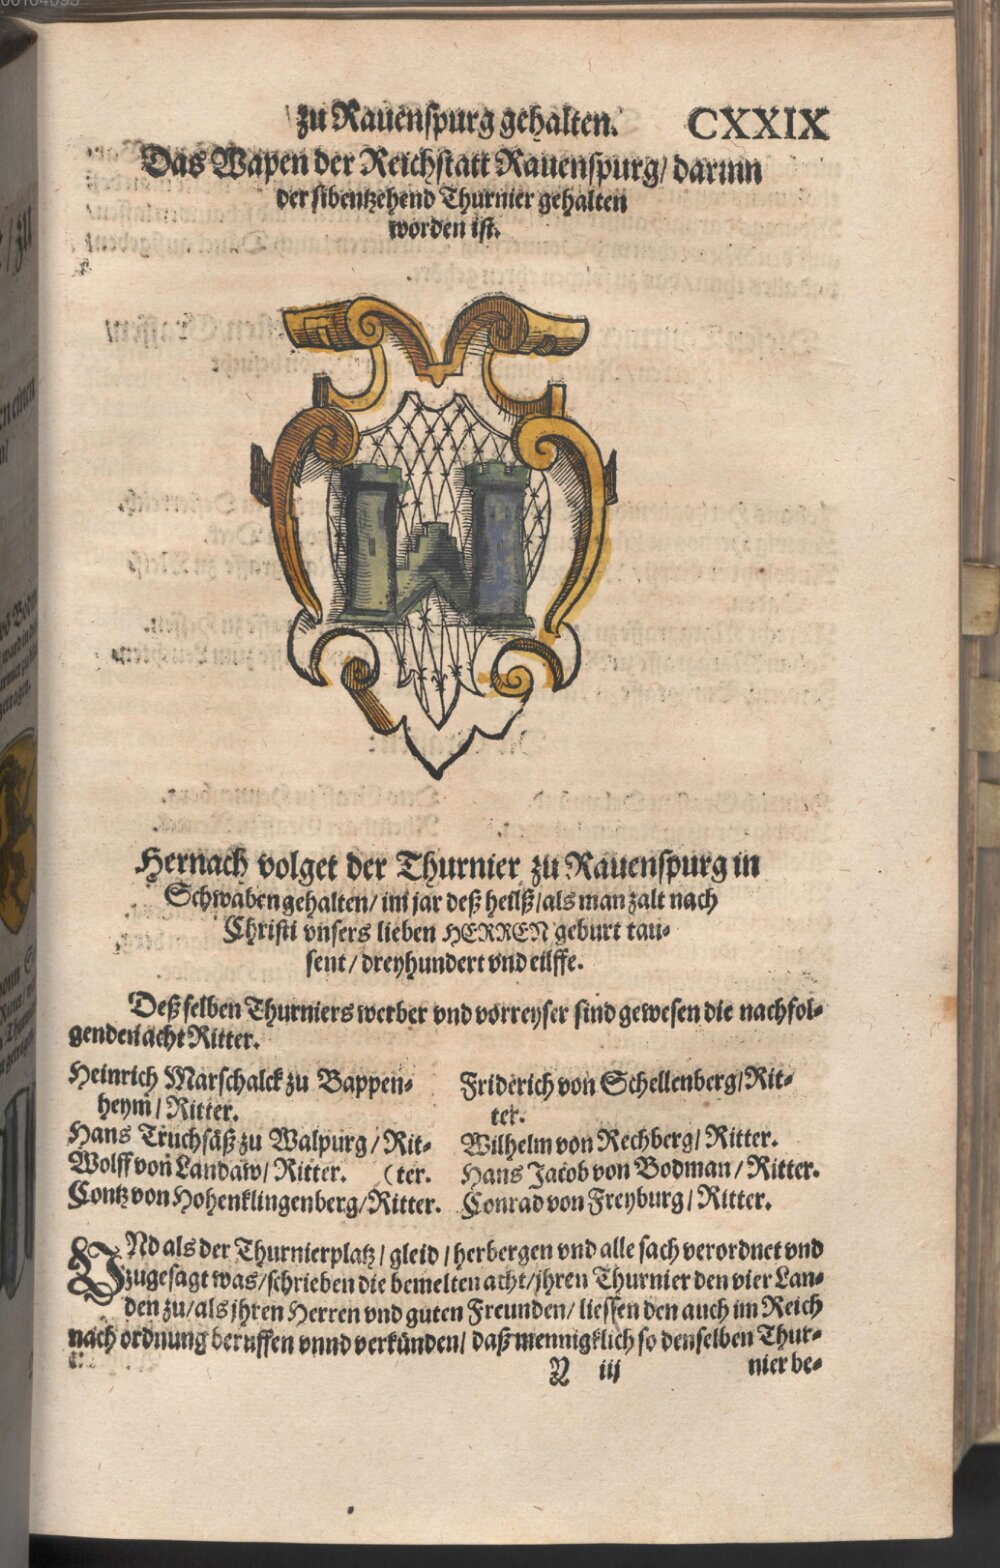 zu Rauenspurg gehalten. CXXIX
Das Wapen der Reichstatt Rauenspurg/ darinn
der sibentzehend Thurnier gehalten
worden ist.
Hernach volget der Thurnier zu Rauenspurg in
Schwaben gehalten/ im jar deß heilß/ als man zalt nach
Christi vnsers lieben HERREN geburt tau-
sent/ dreyhundert vnd eilffe.
Deßselben Thurniers werber vnd vorreyser sind gewesen die nachfol-
genden acht Ritter.
Heinrich Marschalck zu Bappen-
heym/ Ritter.
Hans Truchsäß zu Walpurg/ Rit-
Wolff von Landaw/ Ritter. (ter.
Contz von Hohenklingenberg/ Ritter.
Friderich von Schellenberg/ Rit-
ter.
Wilhelm von Rechberg/ Ritter.
Hans Jacob von Bodman/ Ritter.
Conrad von Freyburg/ Ritter.
VNd als der Thurnierplatz/ gleid/ herbergen vnd alle sach verordnet vnd
zugesagt was/ schrieben die bemelten acht/ jhren Thurnier den vier Lan-
den zu/ als jhren Herren vnd guten Freunden/ liessen den auch im Reich
nach ordnung beruffen vnnd verkünden/ daß mennigklich so denselben Thur-
N iij nier be-